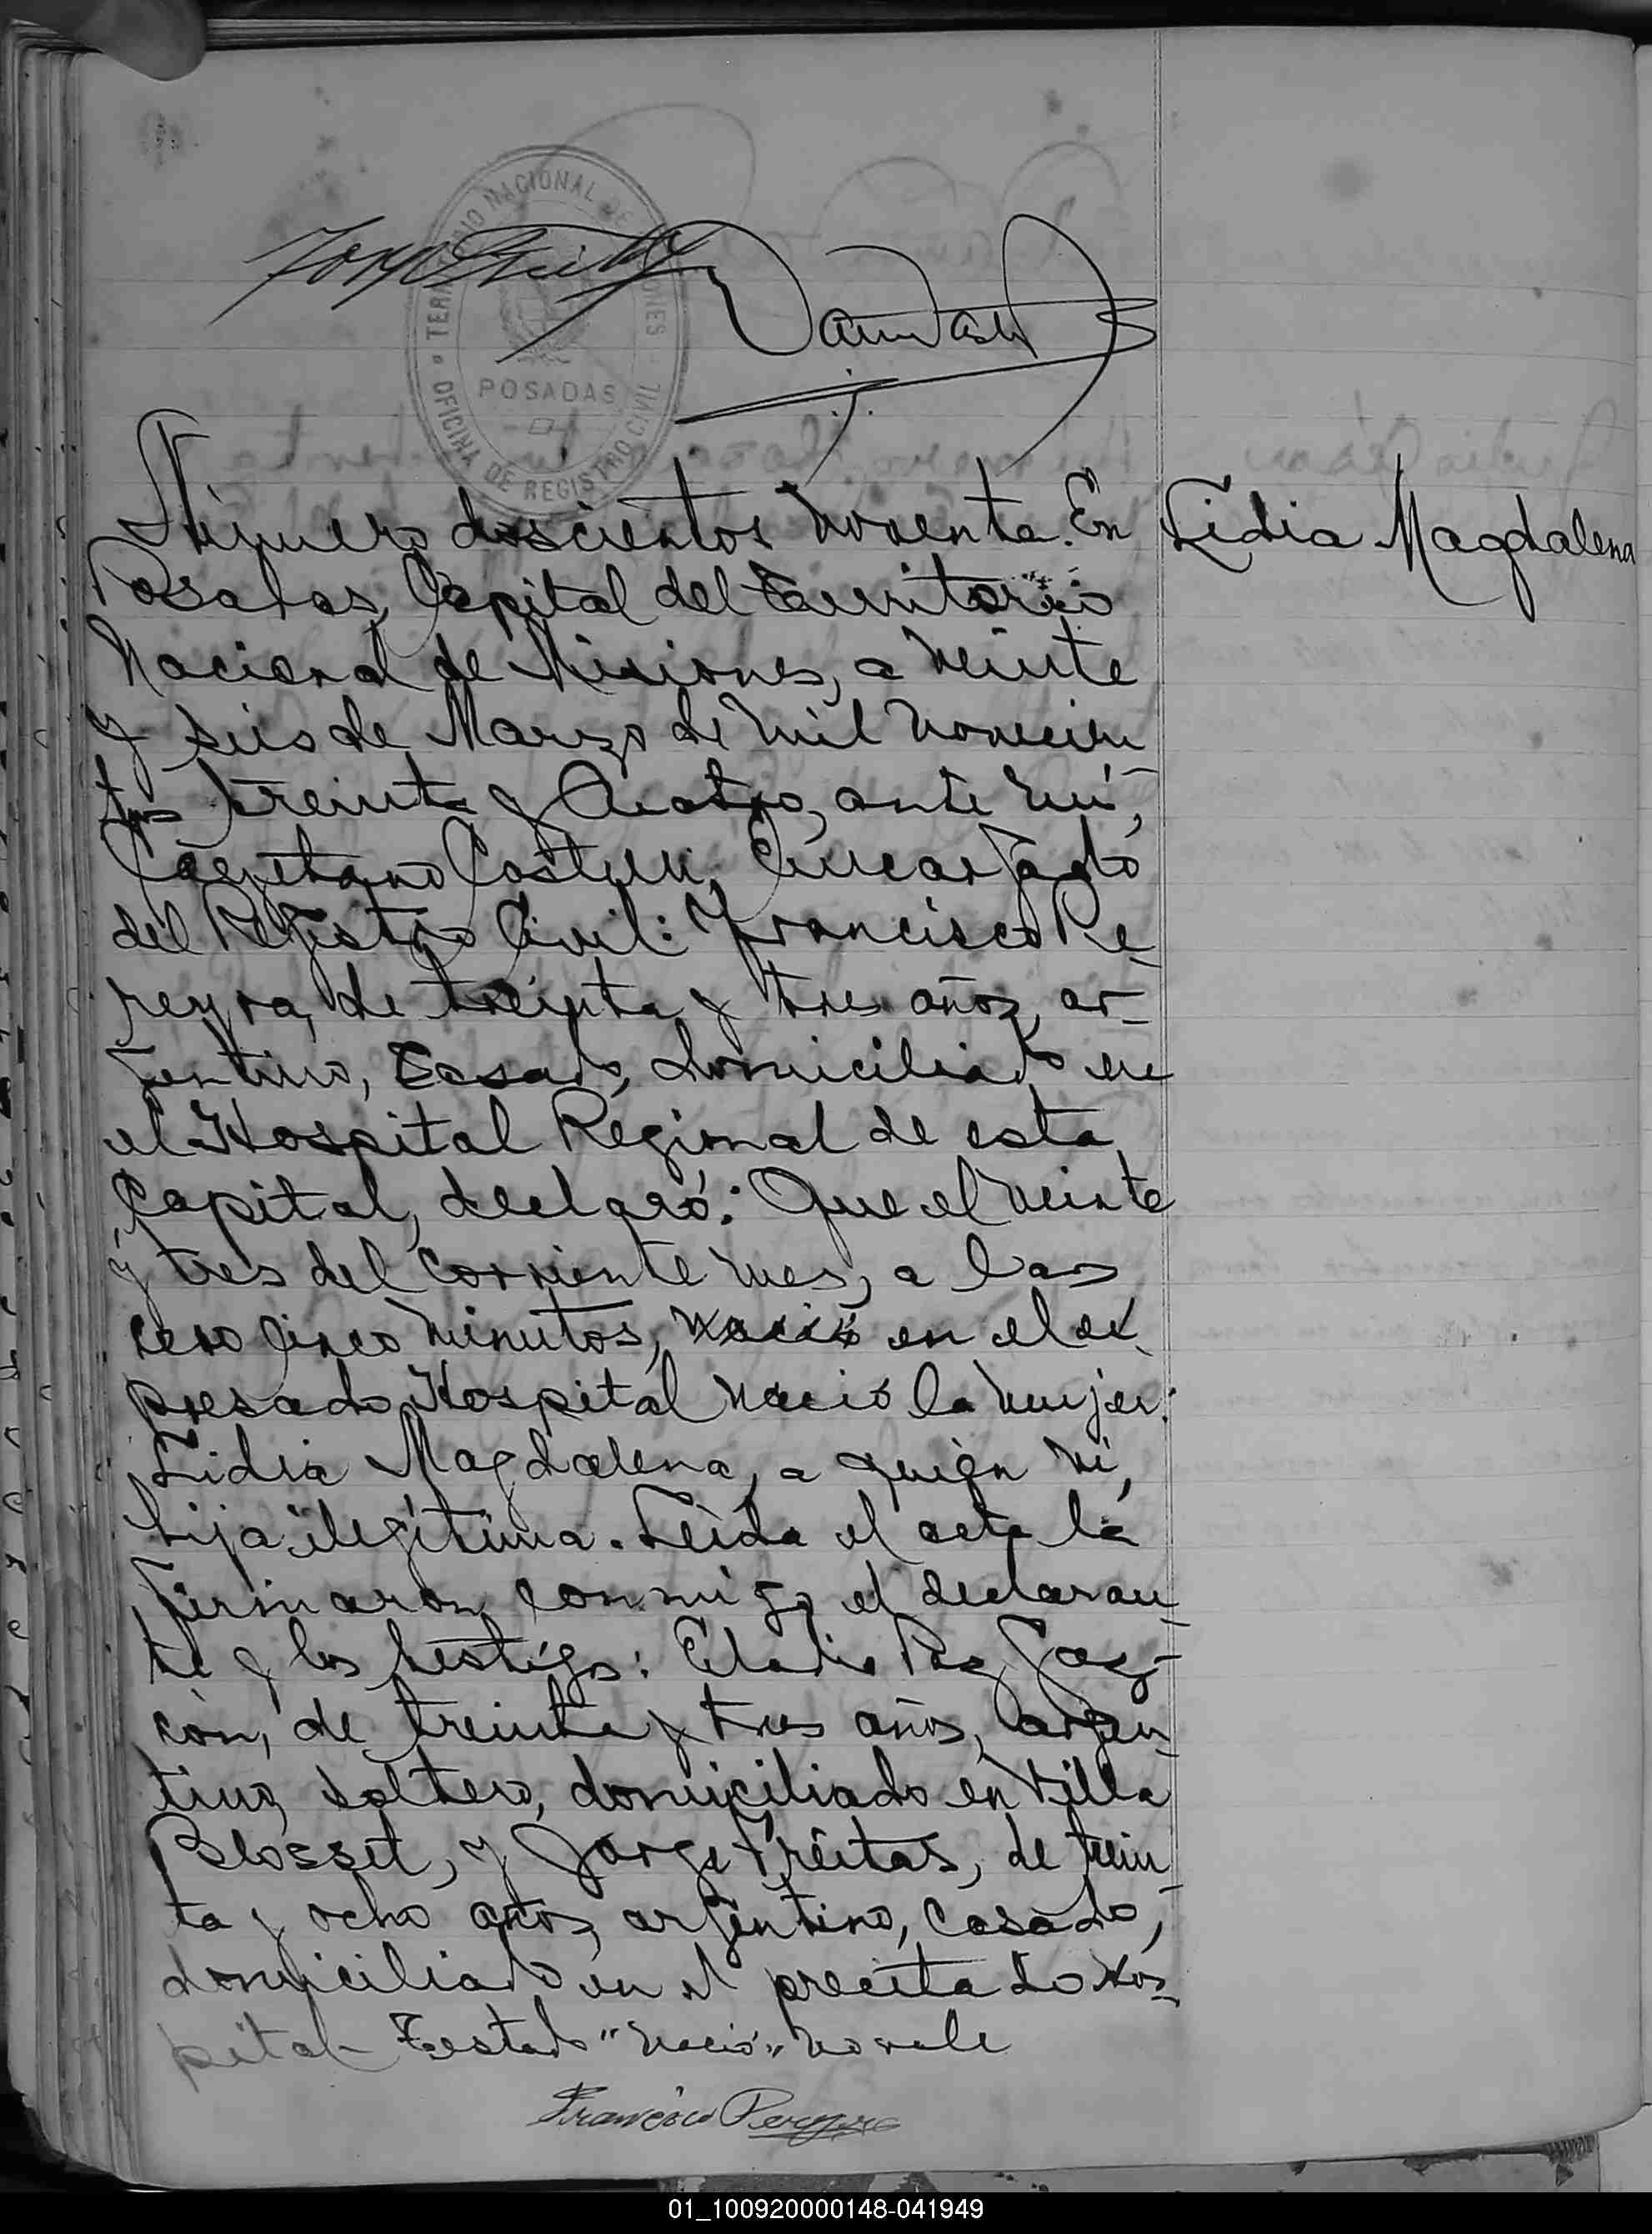 TERRITORIO NACIONAL DE MISIONES
POSADAS
OFICINA DE REGISTRO CIVIL
Lidia Magdalena
Número doscientos noventa. En
Posadas, Capital del Territorio
Nacional de Misiones, a veinte
y seis de Marzo de mil novecien
tos treinta y cuatro, ante mí,
Cayetano Castelli, Encargado
del Registro Civil: Francisco Pe-
reyra, de treinta y tres años, ar-
gentino, casado, domiciliado en
el Hospital Regional de esta
Capital, declaró: Que el veinte
y tres del corriente mes, a las
cero cinco minutos, nació en el ex
presado Hospital nació la mujer:
Lidia Magdalena, a quien vi,
hija ilegítima. Leída el acta la
firmaron conmigo el declaran-
te y los testigos: Eladio Paz
de treinta y tres años, argen-
tino, soltero, domiciliado en Villa
Blosset, y Jorge Freitas, de trein-
ta y ocho años, argentino, casado,
domiciliado en el precitado Hos-
pital - Testado "nació" no vale
Francisco Pereyra
01_100920000148-041949